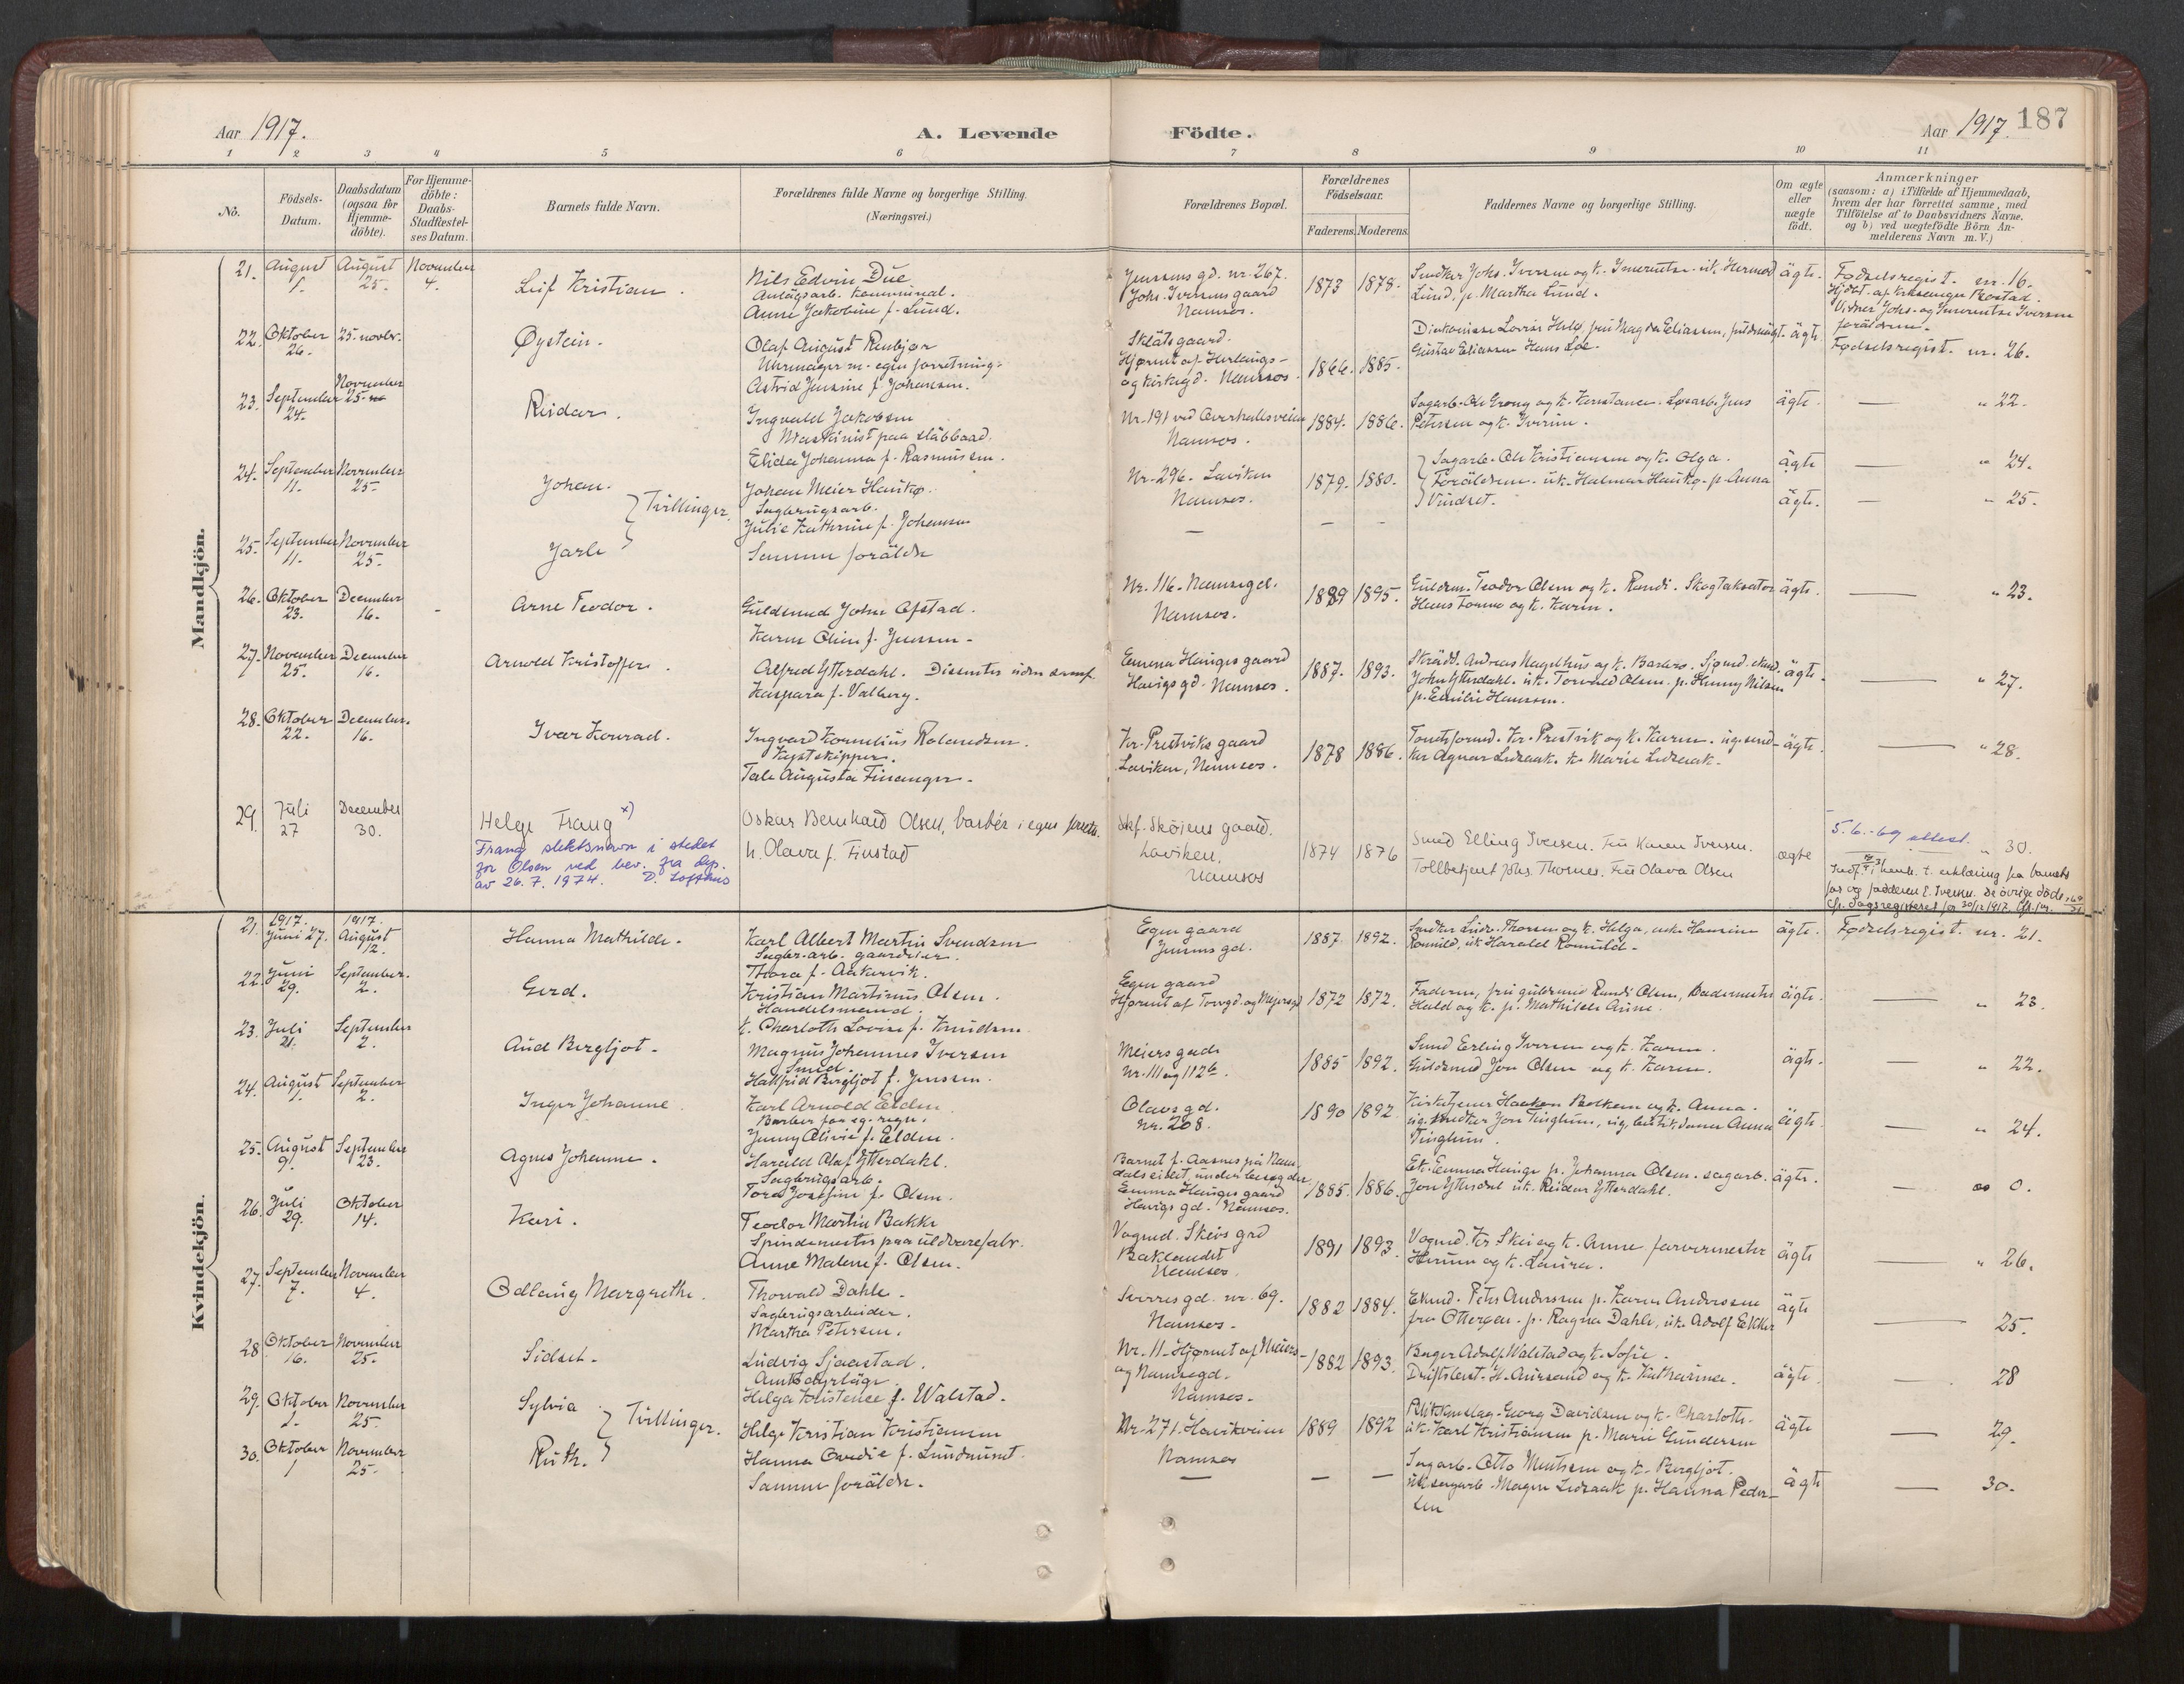 Aar 1917.
A. Levende Födte.
Aar 1917. 187
1 2 3 4 5 6 7 8 9 10 11
No.
Födsels-Datum.
Daabsdatum (ogsaa for Hjemme-döbte).
For Hjemme-döbte: Daabs-Stadfæstel-ses Datum.
Barnets fulde Navn.
Forældrenes fulde Navne og borgerlige Stilling.
(Næringsvei.)
Forældrenes Bopæl.
Forældrenes Födselsaar.
Faderens. Moderens.
Faddernes Navne og borgerlige Stilling.
Om ægte eller uægte födt.
Anmærkninger
(saasom: a) i Tilfælde af Hjemmedaab,
hvem der har forrettet samme, med
Tilföielse af to Daabsvidners Navne.
og b) ved uægtefödte Börn An-
melderens Navn m. V.)
Mandkjön.
21. August 1. August 25. November 4.
Leif Kristian.
Nils Edvin Due
Anlägsarb. kommunal.
Anne Jakobine f. Lund.
Jensens gd. nr. 267.
Johs. Iversens gaard
Namsos.
1873 1878.
Lund, p. Martha Lund.
ägte.
Fødselsregist. nr. 16.
22. Oktober 26. 25. novbr.
Øystein.
Olaf August Renbjør
Uhrmager m. egen forretning.
Astrid Jensine f. Johansen.
Sklåtsgaard.
og Kirkegd. Namsos.
1866. 1885.
Gustav Eliassen Hans Löe.
ägte
forældrene.
Fødselsregist. nr. 26.
23. September 24. November 25.
Reidar.
Ingvald Jakobsen
Maskinist paa släbbaad.
Elida Johanna f. Rasmussen.
Nr. 191 ved Overhallsveien
Namsos.
1884. 1886.
Petersen og k. Iverine.
ägte.
— " 22.
24. September 11. November 25.
Johan. } Tvillinger.
Johan Meier Hauko.
Sagbrugsarb.
Julie Kathrine f. Johansen
Nr. 296. Laviken
Namsos.
1879. 1880.
Sagarb. Ole Kristiansen og k. Olga.
Foräldrene. uk. Halmar Hauko. p. Anna
Vindset.
ägte
— " 24.
25. September 11. November 25.
Jarle
Samme foräldre
— — —
ägte.
— " 25.
26. Oktober 23. December 16.
Arne Teodor.
Guldsmed John Ofstad.
Karen Oline f. Jensen.
Nr. 116. Namsegd.
Namsos.
1889 1895.
Guldsm. Teodor Olsen og k. Randi. Skogtaksator
Hans Tomme og k. Karen.
ägte.
— " 23.
27. November 25. December 16.
Arnold Kristoffer.
Alfred Ytterdahl. Dissenter uden samf.
Kaspara f. Valberg.
Emma Hauges gaard
Havigs gd. Namsos.
1887. 1893.
John Ytterdahl. uk. Torvald Olsen. p. Hanny Nilsen
p. Emilie Hansen.
ägte.
— " 27.
28. Oktober 22. December 16.
Ivar Konrad.
Ingvard Kornelius Rolandsen.
Kystskipper.
Tale Augusta Finanger.
Kr. Prestviks gaard
Laviken, Namsos.
1878 1886.
Tomteformd. Kr. Prestvik og k. Karen. ug. smed
ägte.
— " 28.
29. Juli 27 December 30.
Helge Frang x)
Frang slektsnavn i stedet
for Olsen ved bev. fra dep.
av 26.7.1974. D. Lofthus
Oskar Bernhard Olsen, barbér i egen forretn.
h. Olava f. Finstad
Skf. Skøiens gaard.
Laviken,
Namsos
1874 1876
Smed Elling Iversen. Fru Karen Iversen.
Tollbetjent Johs. Thornes. Fru Olava Olsen
ægte
5.6.-69 attest.
— " 30.
Indf. i henh. t. erklæring fra barnets
far og fadderen E. Iversen. De övrige döde.
Cfr. Dagsregisteret for 30/12 1917.
Kvindekjön.
21. 1917. Juni 27. 1917. August 12.
Hanna Mathilde.
Karl Albert Martin Svendsen
Sagbr. arb. gaardeier.
Thora f. Aakervik.
Egen gaard
1887. 1892.
Snedker Ludv. Thorsen og k. Helga, enke Hansine
Romuld, uk. Harald Romuld.
ägte.
Fødselsregist. nr. 21.
22. Juni 29. September 2.
Gerd.
Kristian Martinus Olsen.
Handelsmand.
k. Charlotte Lovise f. Knudsen.
Egen gaard
Hjørnet af Torvgd. og Meiersgd
1872 1872.
Faderen, fru guldsmed Randi Olsen, Bademester
Huld og k. p. Mathilde Aune.
ägte.
— " 23.
23. Juli 21. September 2.
Aud Bergljot.
Magnus Johannes Iversen
Smed.
Halfrid Bergljot f. Jenssen.
Meiers gade
Nr. 111 og 112b.
1885 1892.
Smed Erling Iversen og k. Karen.
Guldsmed Jon Olsen og k. Karen.
ägte.
— " 22.
24. August 1. September 2.
Inger Johanne.
Karl Arnold Elden.
Barber for eg. regn.
Jenny Olivie f. Elden.
Olavs gd.
nr. 208.
1890 1892
Kirketjener Haakon Bolken og k. Anna.
Tinghus.
ägte.
— " 24.
25. August 9. September 23.
Agnes Johanne.
Harald Olaf Ytterdahl.
Sagbrugsarb.
Tora Josefine f. Olsen.
Barnet f. Aasnes på Nam-
dalseidet, under besøg der
Emma Hauges gaard
Havigs gd. Namsos.
1885. 1886.
Ek. Emma Hauge p. Johanna Olsen. sagarb.
Jon Ytterdal uk. Reidar Ytterdahl.
ägte.
— 0.
26. Juli 29. Oktober 14.
Kari.
Teodor Martin Bakke
Spindemester paa uldvarefabr.
Anne Malene f. Olsen.
Vognmd. Skeis grd
Baklandet
Namsos.
1891 1893.
Vognmd. Kr. Skei og k. Anne farvermester
og k. Laura.
ägte
— " 26.
27. September 7. November 4.
Odlaug Margrethe.
Thorvald Dahle.
Sagbrugsarbeider.
Martha Petersen.
Sverresgd. nr. 69.
Namsos.
1882 1884.
Ekmd. Peter Anderssen p. Karen Anderssen
fra Otterøen. p. Ragna Dahle, uk. Adolf Ekker
ägte
— 25.
28. Oktober 16. November 25.
Sidsel.
Ludvig Sjaastad.
Amtsdyrläge
Helga Kristence f. Walstad.
Nr. 11. Hjørnet af Meiers
og Namsegd.
Namsos.
1882 1893.
Bager Adolf Walstad og k. Sofie.
Driftsbest. H. Aursand og k. Katharina.
ägte.
— 28
29. Oktober 1. November 25.
Sylvia } Tvillinger.
Helge Kristian Kristiansen
Hanna Ovedie f. Lundmust
Nr. 271. Havikveien
Namsos
1889 1892
Blikkenslag. Georg Davidsen og k. Charlotte.
uk. Karl Kristiansen p. Marie Gundersen
ägte
— 29.
30. Oktober 1 November 25.
Ruth.
Samme foräldre.
— — —
Sagarb. Otto Mentsen og k. Bergljot.
uk. sagarb. Magne Lidsaak p. Hanna Peder-
sen
ägte
— 30.